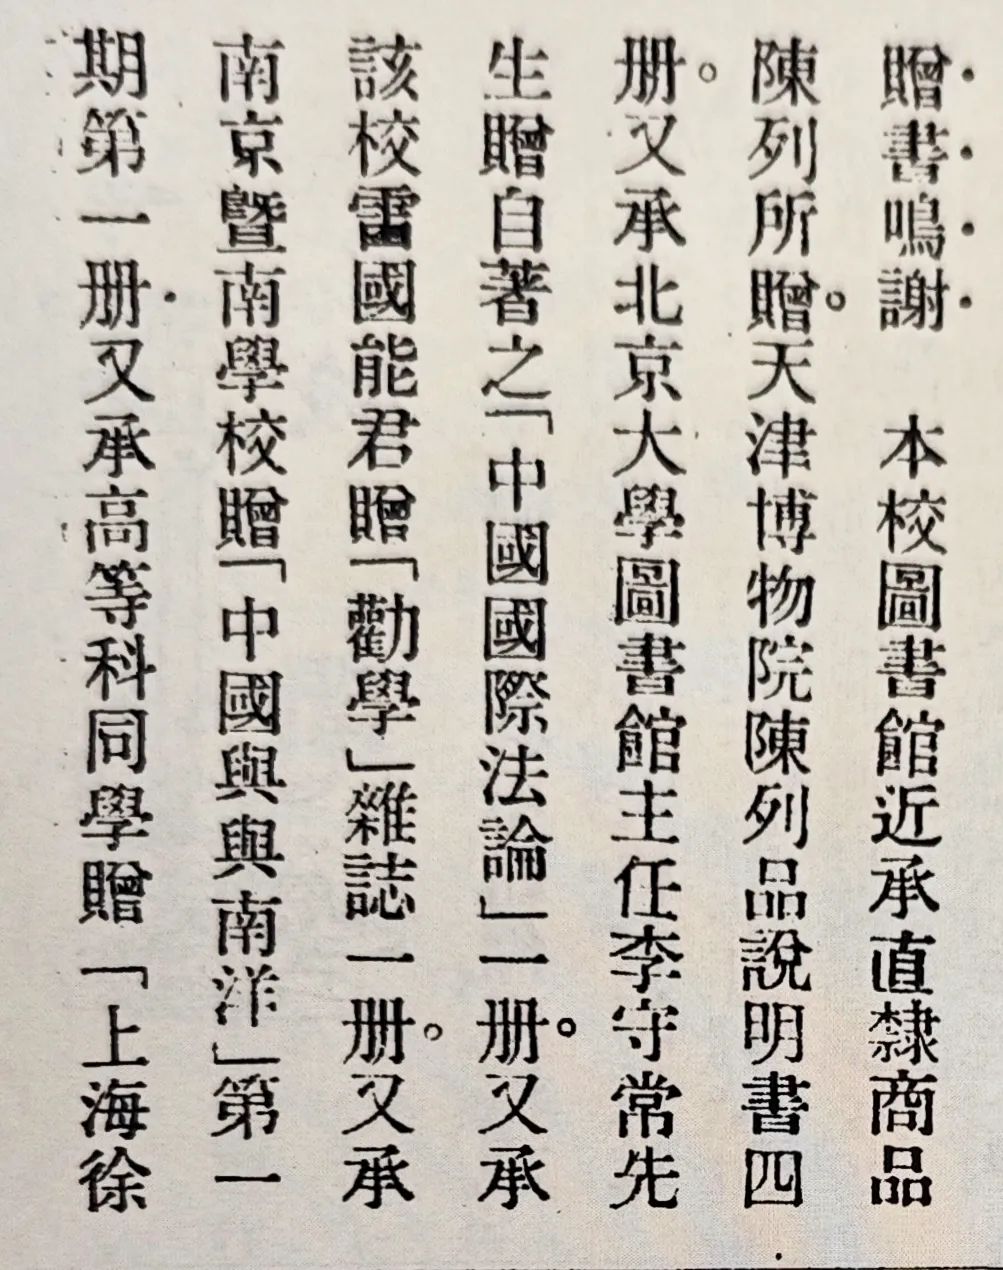 贈書鳴謝　本校圖書館近承直隸商品
陳列所贈。天津博物院陳列品說明書四
册。又承北京大學圖書館主任李守常先
生贈自著之「中國國際法論」一册。又承
該校雷國能君贈「勸學」雜誌一册。又承
南京曁南學校贈「中國與與南洋」第一
期第一册．又承高等科同學贈「上海徐